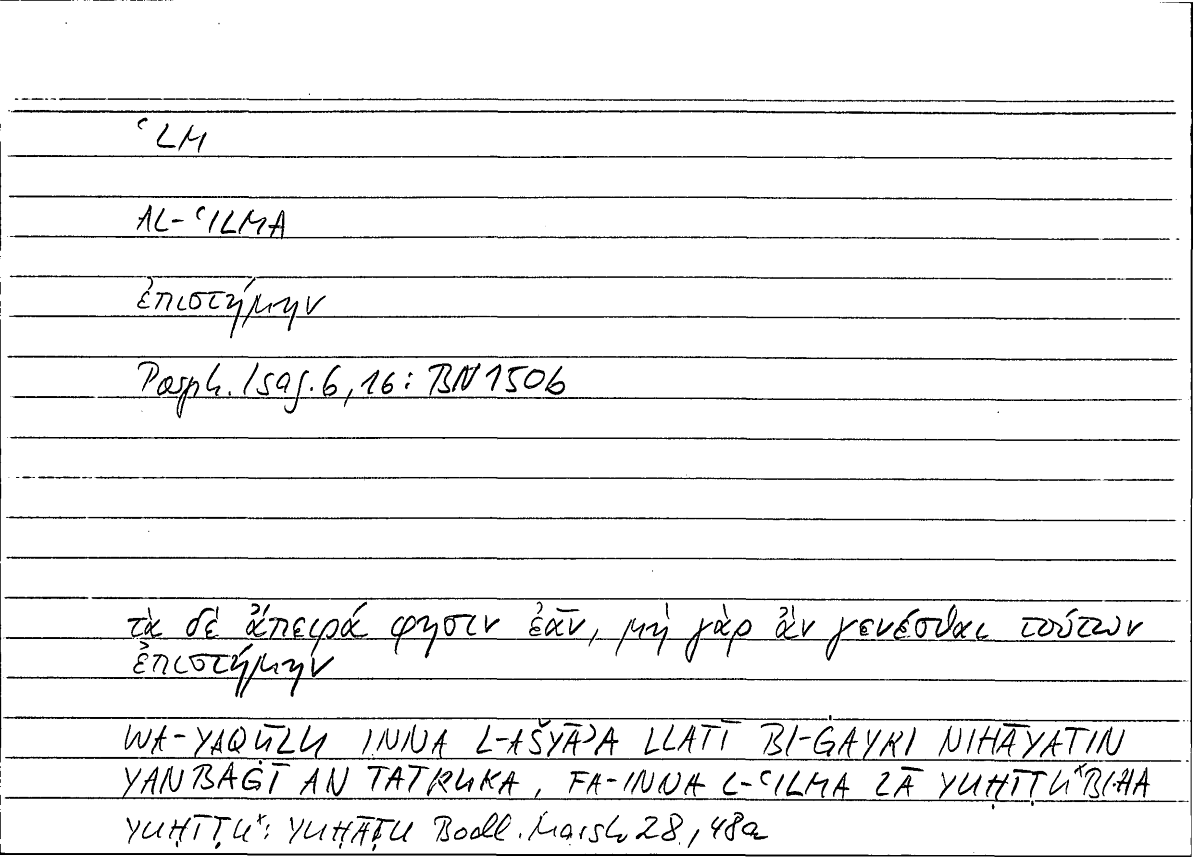 ʿLM
AL-ʿILMA
ἐπιστήμην
Porph. Isag. 6, 16: BN 150b
τὰ δὲ ἄπειρά φησιν ἐᾶν, μὴ γὰρ ἂν γενέσθαι τούτων
ἐπιστήμην
WA-YAQŪLU INNA L-AŠYĀʾA LLATĪ BI-ĠAYRI NIHĀYATIN
YANBAĠĪ AN TATRUKA, FA-INNA L-ʿILMA LĀ YUḤĪṬUˣ BI-HA
YUḤĪṬUˣ: YUḤĀṬU Bodl. Marsh 28, 48a